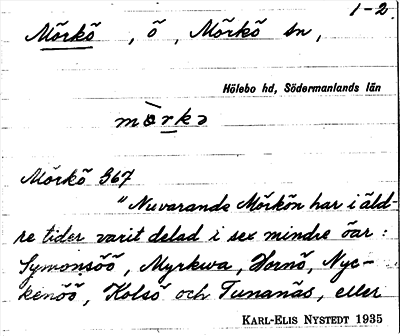 1-2.
Mörkö, ö, Mörkö sn,
Hölebo hd, Södermanlands län
mö̀rkə
Mörkö 367
"Nuvarande Mörkön har i äld-
re tider varit delad i sex mindre öar:
Symonsöö, Myrkwa, Hornö, Nyc-
kenöö, Kolsö och Tunanäs, eller
KARL-ELIS NYSTEDT 1935